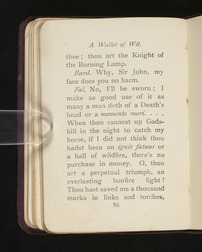 A Wallet of Wit.
thee; thou art the Knight of
the Burning Lamp.
Bard. Why, Sir John, my
face does you no harm.
Fal. No, I'll be sworn; I
make as good use of it as
many a man doth of a Death's
head or a memento mori. . . .
When thou rannest up Gads-
hill in the night to catch my
horse, if I did not think thou
hadst been an ignis fatuus or
a ball of wildfire, there's no
purchase in money. O, thou
art a perpetual triumph, an
everlasting bonfire light!
Thou hast saved me a thousand
marks in links and torches,
86